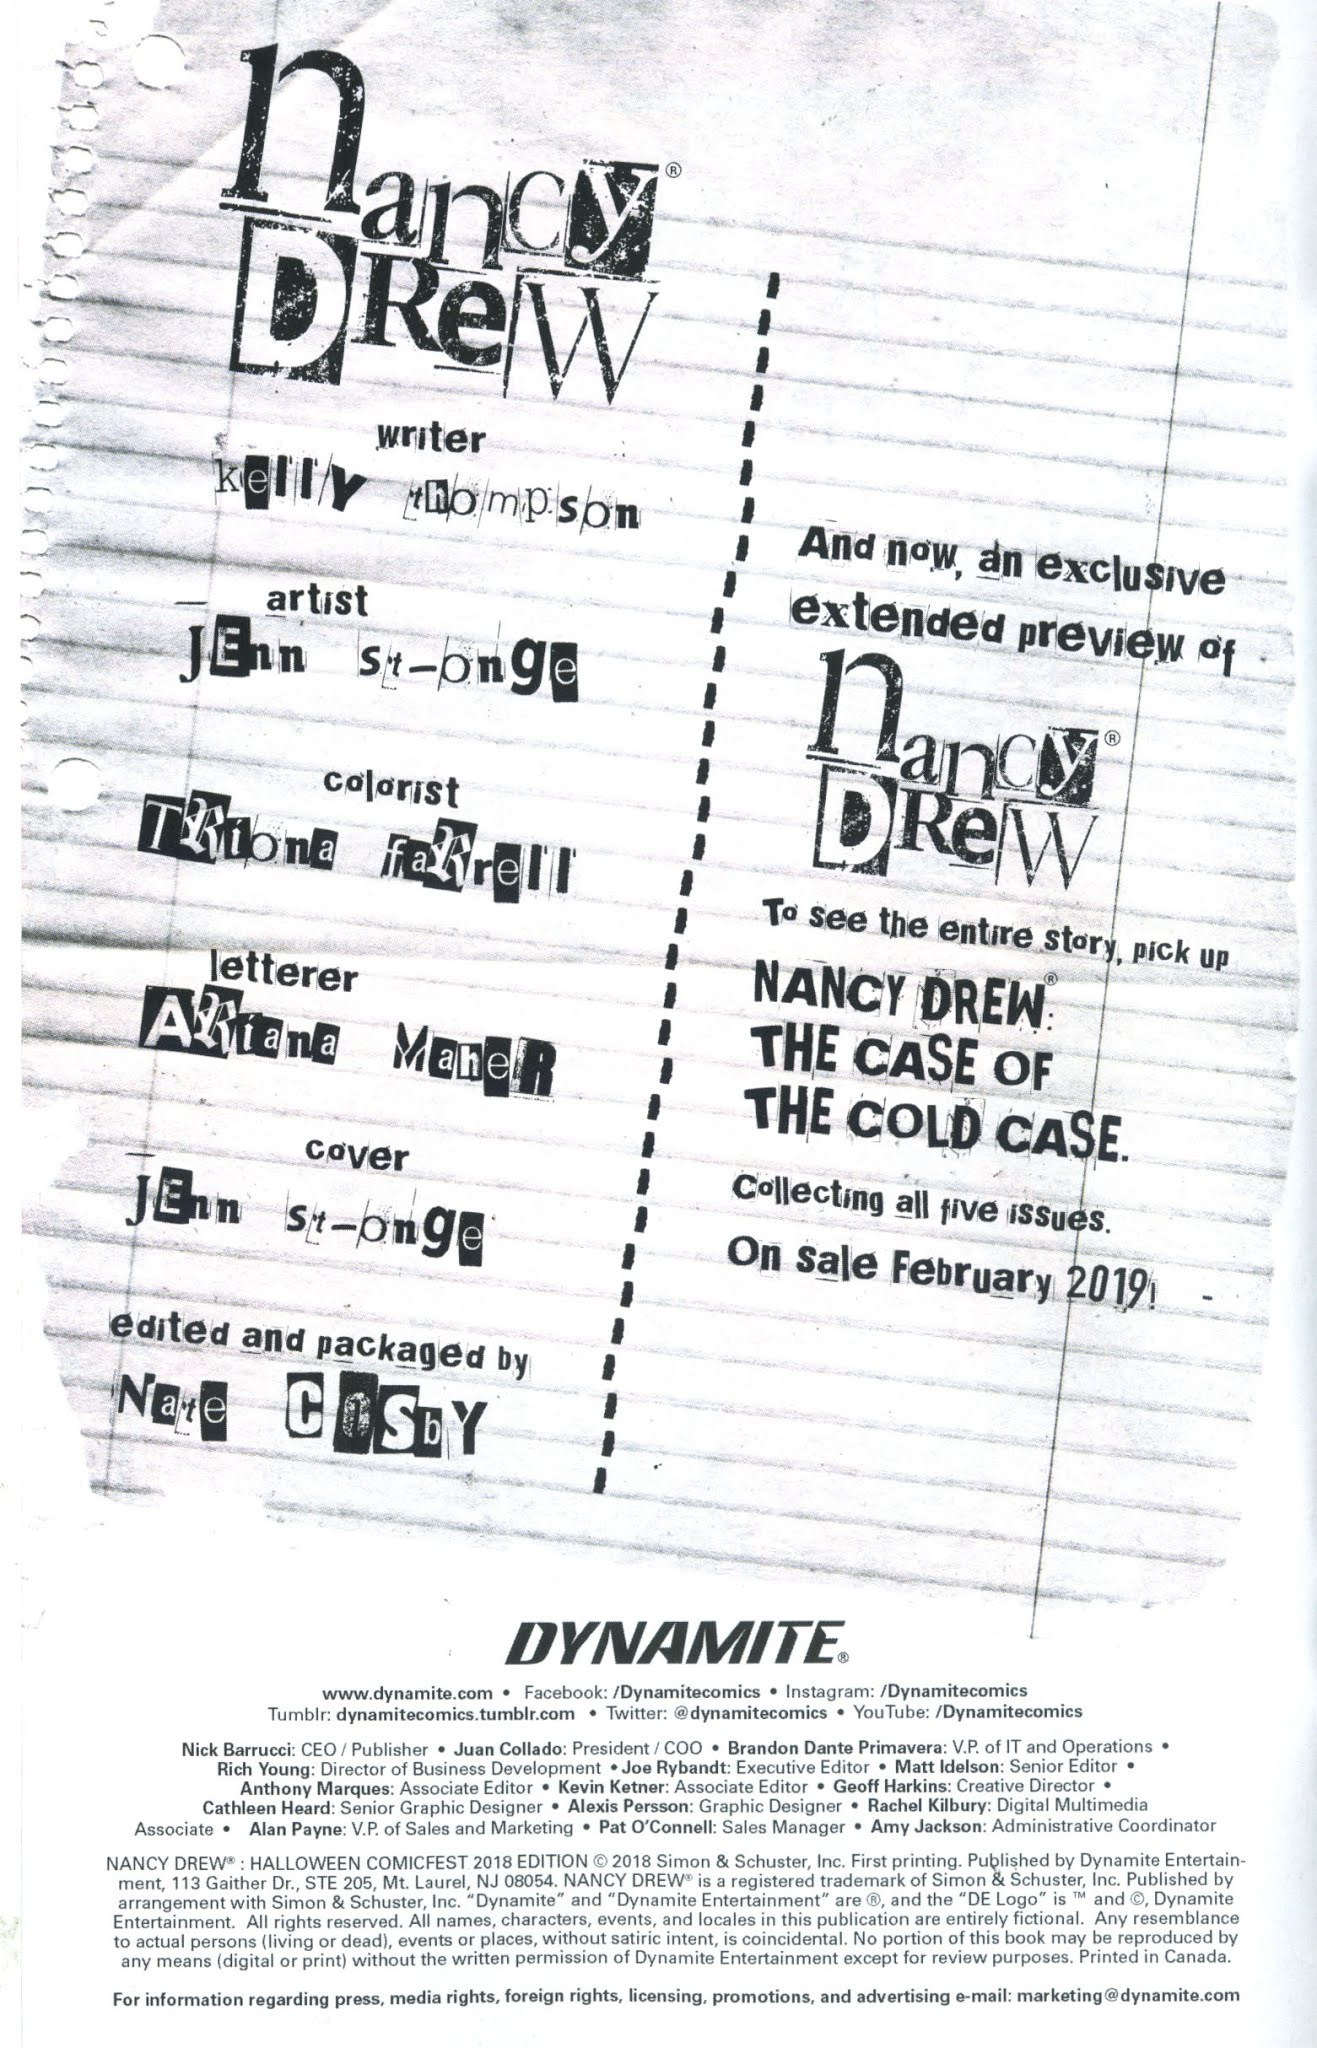 nancy®
DRew
writer
kelly thompson
artist
JEnn st-onge
colorist
TRiona faRrell
letterer
ARiana MaheR
cover
JEnn st-onge
edited and packaged by
Nate COSbY
And now, an exclusive
extended preview of
nancy®
DRew
To see the entire story, pick up
NANCY DREW®:
THE CASE OF
THE COLD CASE.
Collecting all five issues.
On sale February 2019!
DYNAMITE®
www.dynamite.com • Facebook: /Dynamitecomics • Instagram: /Dynamitecomics
Tumblr: dynamitecomics.tumblr.com • Twitter: @dynamitecomics • YouTube: /Dynamitecomics
Nick Barrucci: CEO / Publisher • Juan Collado: President / COO • Brandon Dante Primavera: V.P. of IT and Operations •
Rich Young: Director of Business Development • Joe Rybandt: Executive Editor • Matt Idelson: Senior Editor •
Anthony Marques: Associate Editor • Kevin Ketner: Associate Editor • Geoff Harkins: Creative Director •
Cathleen Heard: Senior Graphic Designer • Alexis Persson: Graphic Designer • Rachel Kilbury: Digital Multimedia
Associate • Alan Payne: V.P. of Sales and Marketing • Pat O'Connell: Sales Manager • Amy Jackson: Administrative Coordinator
NANCY DREW® : HALLOWEEN COMICFEST 2018 EDITION © 2018 Simon & Schuster, Inc. First printing. Published by Dynamite Entertain-
ment, 113 Gaither Dr., STE 205, Mt. Laurel, NJ 08054. NANCY DREW® is a registered trademark of Simon & Schuster, Inc. Published by
arrangement with Simon & Schuster, Inc. “Dynamite” and “Dynamite Entertainment” are ®, and the “DE Logo” is ™ and ©, Dynamite
Entertainment. All rights reserved. All names, characters, events, and locales in this publication are entirely fictional. Any resemblance
to actual persons (living or dead), events or places, without satiric intent, is coincidental. No portion of this book may be reproduced by
any means (digital or print) without the written permission of Dynamite Entertainment except for review purposes. Printed in Canada.
For information regarding press, media rights, foreign rights, licensing, promotions, and advertising e-mail: marketing@dynamite.com